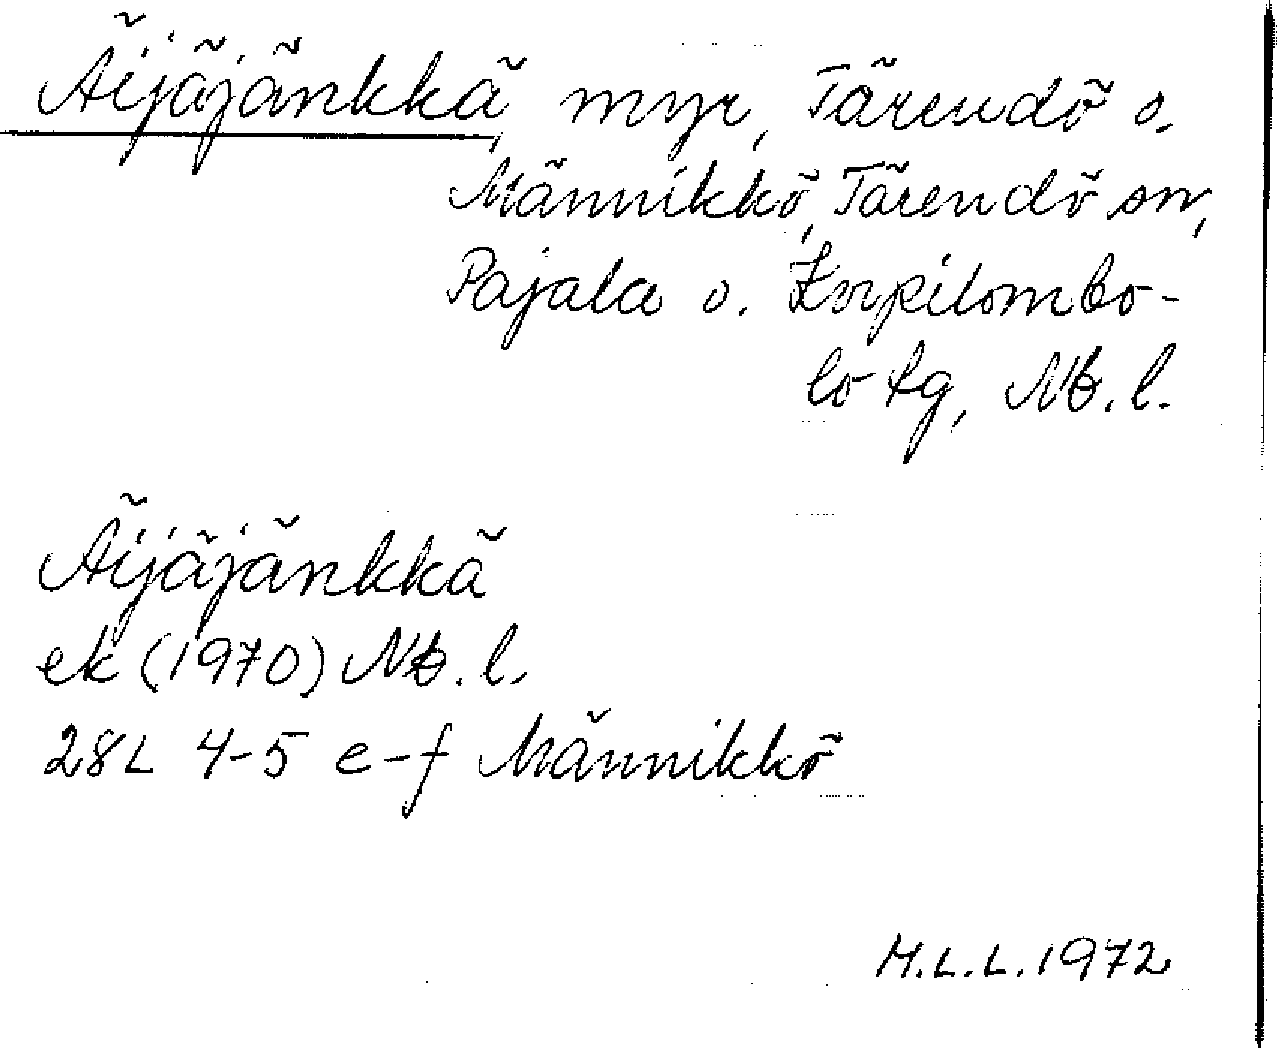 Äijäjänkkä myr, Tärendö o.
Männikkö, Tärendö sn,
Pajala o. Korpilombo-
lo tg, Nb. l.
Äijäjänkkä
ek (1970) Nb. l.
28L 4-5 e-f Männikkö
M.L.L. 1972